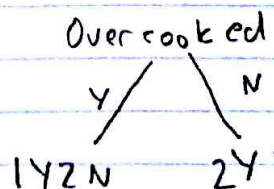 Overcooked
Y N
1Y2N 2Y